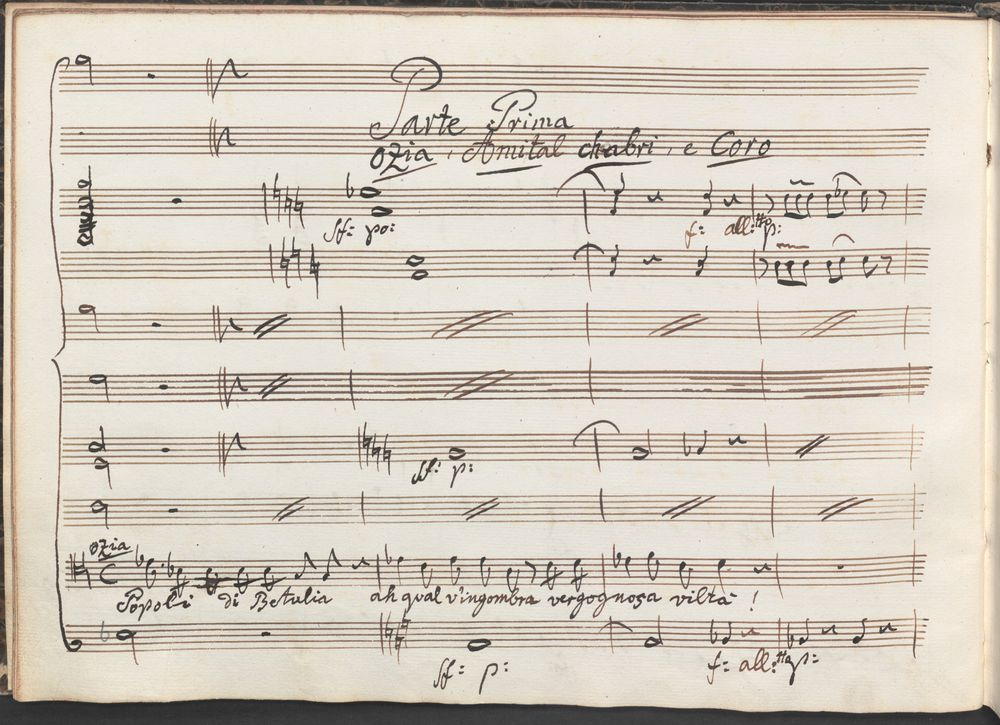 Parte Prima
Ozia, Amital chabri, e Coro
sf: po:
f: all:tt p:
sf: p:
ozia
Popoli di Betulia ah qual v'ingombra vergognosa viltà!
sf: p:
f: all:tt p: